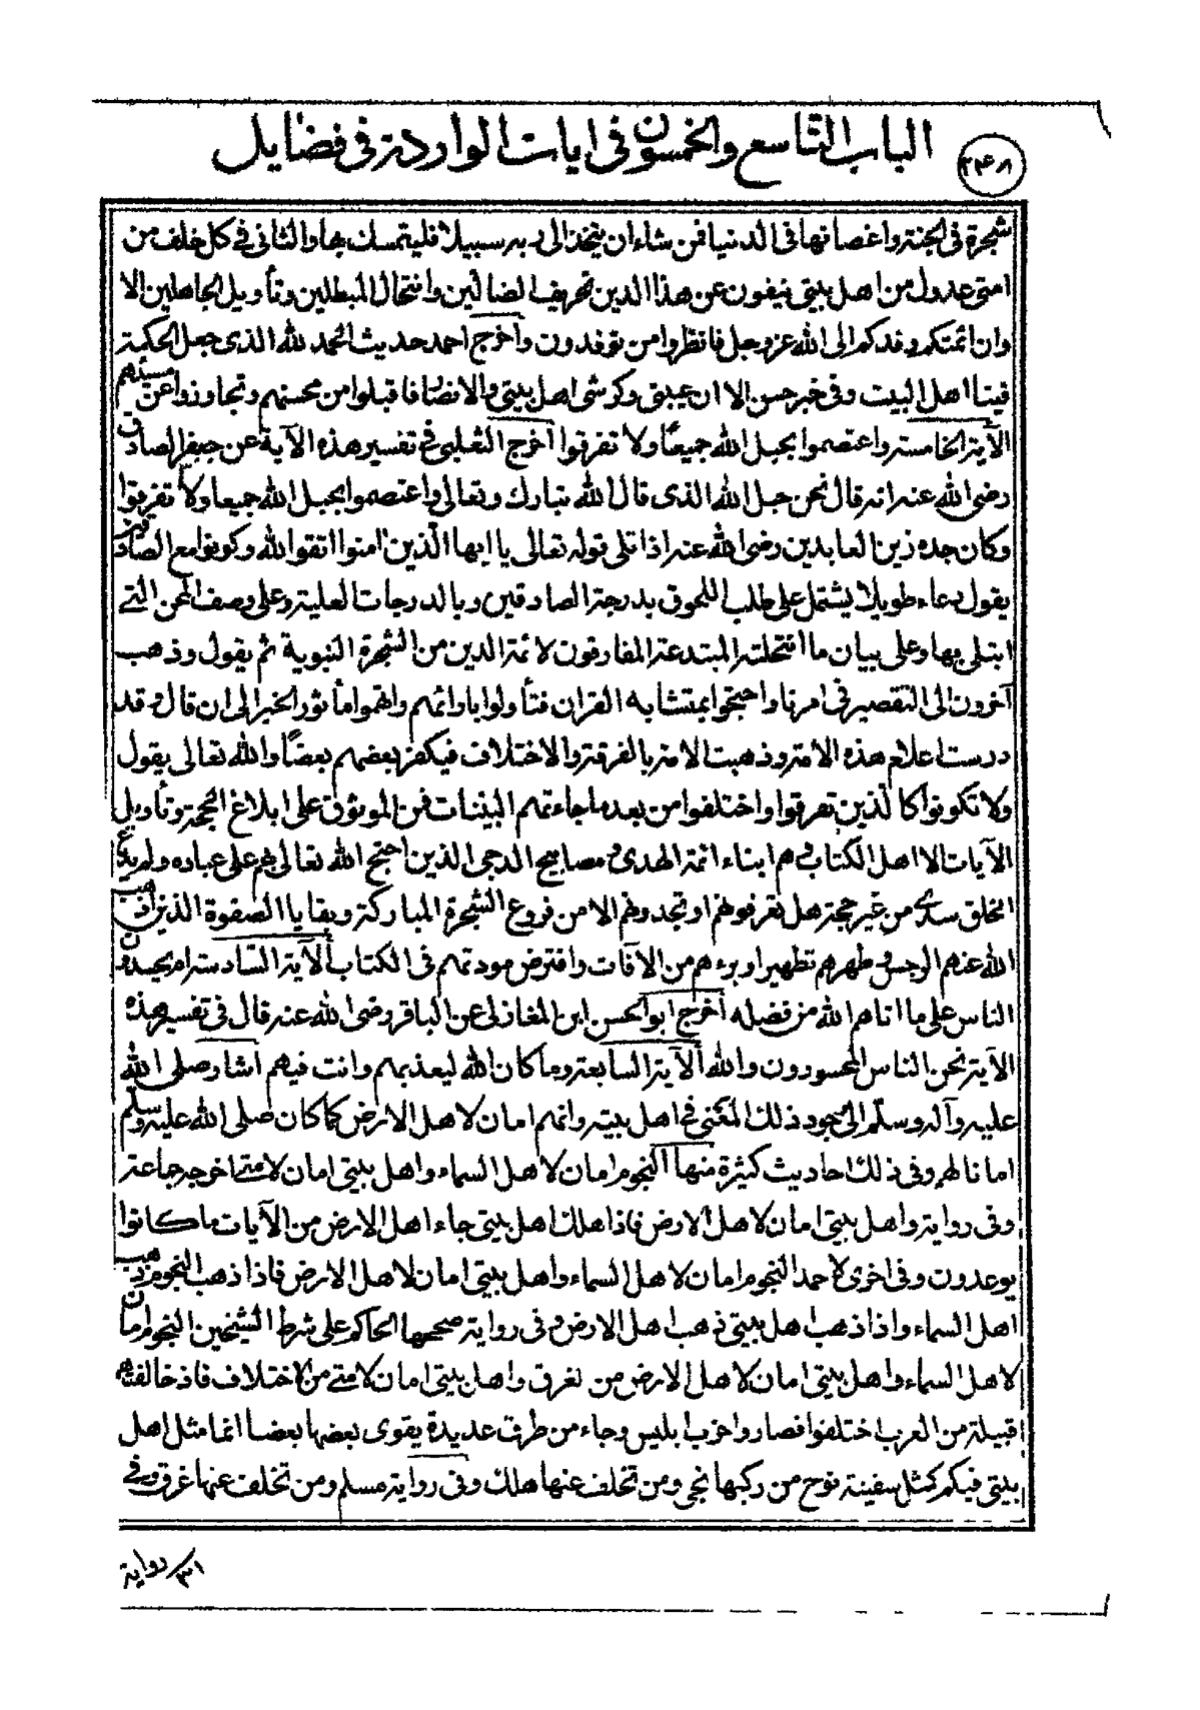 الباب التاسع والخمسون في ايات الواردة في فضايل
٢٤٨
شجرة في الجنة واغصانها في الدنيا فمن شاء ان يتخذ الى ربه سبيلا فليتمسك بها والثاني في كل خلف من
امتي عدول من اهل بيتي ينفون عن هذا الدين تحريف الضالين وانتحال المبطلين وتأويل الجاهلين الا
وان ائمتكم وفدكم الى الله عز وجل فانظروا من توفدون واخرج احمد حديث الحمد لله الذي جعل الحكمة
فينا اهل البيت وفي خبر حسن الا ان عيبتي وكرشي اهل بيتي والانصار فاقبلوا من محسنهم وتجاوزوا عن مسيئهم
الآية الخامسة واعتصموا بحبل الله جميعًا ولا تفرقوا اخرج الثعلبي في تفسير هذه الآية عن جعفر الصادق
رضي الله عنه انه قال نحن حبل الله الذي قال الله تبارك وتعالى واعتصموا بحبل الله جميعا ولا تفرقوا
وكان جده زين العابدين رضي الله عنه اذا تلى قوله تعالى يا ايها الذين امنوا اتقوا الله وكونوا مع الصادقين
يقول دعاء طويلا يشتمل على طلب اللحوق بدرجة الصادقين وبالدرجات العلية وعلى وصف المحن التي
ابتلي بها وعلى بيان ما انتحلته المبتدعة المفارقون لائمة الدين من الشجرة النبوية ثم يقول وذهب
آخرون الى التقصير في امرنا واحتجوا بمتشابه القران فتأولوا باراٸهم واتهموا مأثور الخبر الى ان قال وقد
درست اعلام هذه الامة وذهبت الامة بالفرقة والاختلاف فيكفر بعضهم بعضًا والله تعالى يقول
ولا تكونوا كالذين تفرقوا واختلفوا من بعد ما جاءتهم البينات فمن الموثوق على ابلاغ الحجة وتأويل
الآيات الا اهل الكتاب وهم ابناء ائمة الهدى ومصابيح الدجى الذين احتج الله تعالى بهم على عباده ولم يدع
الخلق سدى من غير حجة هل تعرفونهم او تجدونهم الا من فروع الشجرة المباركة وبقايا الصفوة الذين اذهب
الله عنهم الرجس وطهرهم تطهيرا وبرءهم من الآفات وافترض مودتهم في الكتاب الآية السادسة ام يحسدون
الناس على ما اتاهم الله من فضله اخرج ابو الحسن ابن المغازلي عن الباقر رضي الله عنه قال في تفسير هذه
الآية نحن الناس المحسودون والله الآية السابعة وما كان الله ليعذبهم وانت فيهم اشار صلى الله
عليه وآله وسلم الى وجود ذلك المعنى في اهل بيته وانهم امان لاهل الارض كما كان صلى الله عليه وسلم
امانا لهم وفي ذلك احاديث كثيرة منها النجوم امان لاهل السماء واهل بيتي امان لامتي اخرجه جماعة
وفي رواية واهل بيتي امان لاهل الارض فاذا هلك اهل بيتي جاء اهل الارض من الآيات ما كانوا
يوعدون وفي اخرى لاحمد النجوم امان لاهل السماء واهل بيتي امان لاهل الارض فاذا ذهب النجوم ذهب
اهل السماء واذا ذهب اهل بيتي ذهب اهل الارض وفي رواية صححها الحاكم على شرط الشيخين النجوم امان
لاهل السماء واهل بيتي امان لاهل الارض من لغرق واهل بيتي امان لامتي من الاختلاف فاذ خالفتهم
قبيلة من العرب اختلفوا فصاروا حزب ابليس وجاء من طرق عديدة يقوى بعضها بعضا انما مثل اهل
بيتي فيكم كمثل سفينة نوح من ركبها نجى ومن تخلف عنها هلك وفي رواية مسلم ومن تخلف عنها غرق وفي
رواية
٣١